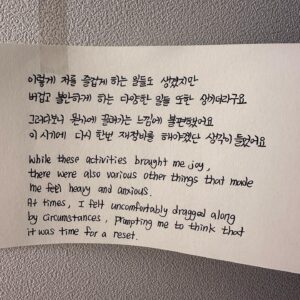 이렇게 저를 즐겁게 하는 일들도 생겼지만
버겁고 불안하게 하는 다양한 일들 또한 생기더라구요
그러다보니 끌려가는 느낌에 불편했어요
이 시기에 다시 한번 재정비를 해야겠단 생각이 들었어요
While these activities brought me joy,
there were also various other things that made
me feel heavy and anxious.
At times, I felt uncomfortably dragged along
by circumstances, prompting me to think that
it was time for a reset.